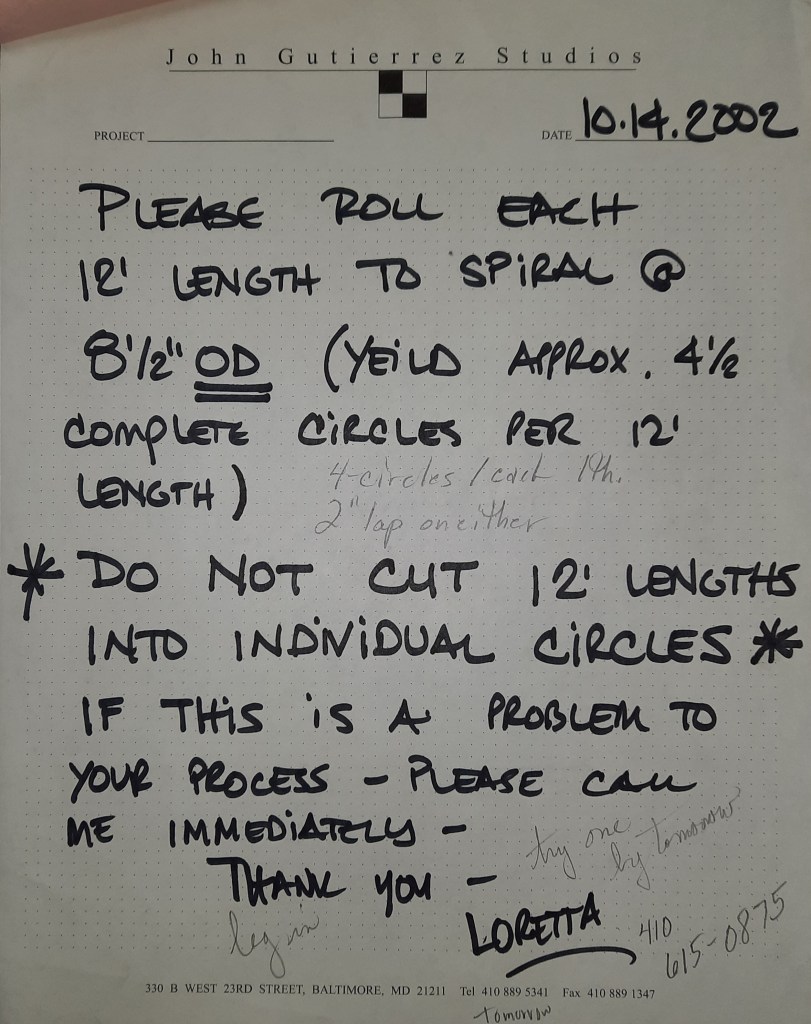 John Gutierrez Studios
PROJECT
DATE 10.14.2002
PLEASE ROLL EACH
12' LENGTH TO SPIRAL @
8 1/2" OD (YEILD APPROX. 4 1/2
COMPLETE CIRCLES PER 12'
LENGTH)
4-circles / each lth.
2" lap on either
* DO NOT CUT 12' LENGTHS
INTO INDIVIDUAL CIRCLES *
IF THIS IS A PROBLEM TO
YOUR PROCESS - PLEASE CALL
ME IMMEDIATELY -
try one
by tomorrow
THANK YOU -
LORETTA
log in
410
615-0875
330 B WEST 23RD STREET, BALTIMORE, MD 21211 Tel 410 889 5341 Fax 410 889 1347
tomorrow